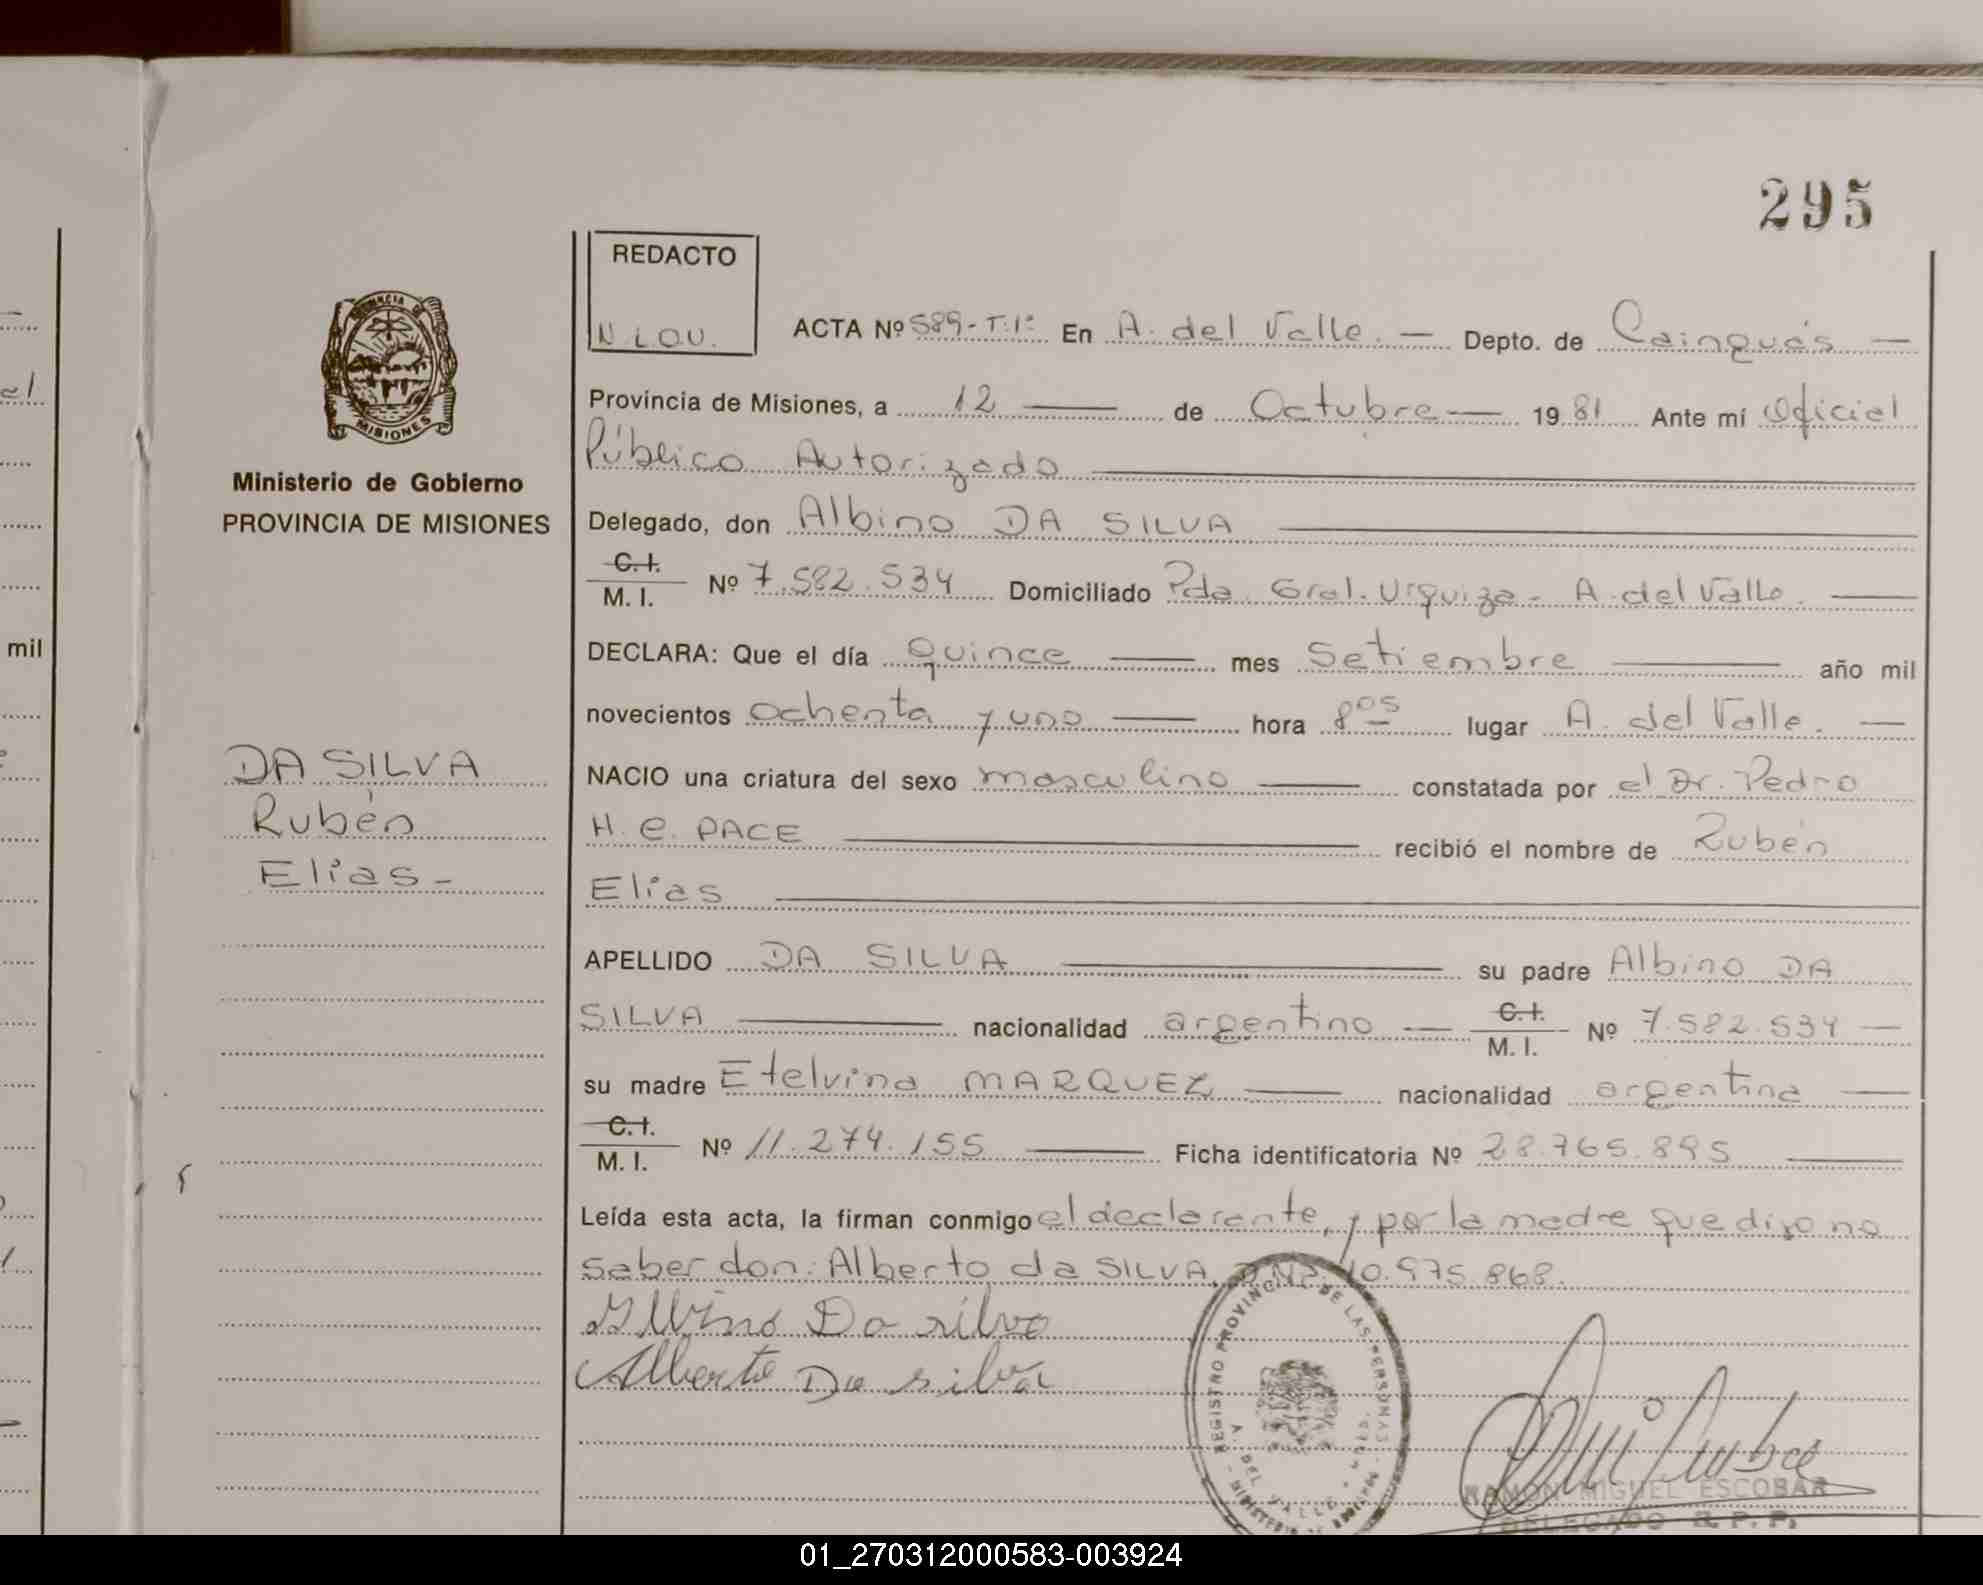 295
REDACTO
N. LOU.
ACTA Nº 589-T:1º En A. del Valle. — Depto. de Cainguás —
PROVINCIA DE MISIONES
Provincia de Misiones, a 12 — de Octubre — 1981 Ante mí Oficial
Público Autorizado
Ministerio de Gobierno
PROVINCIA DE MISIONES
Delegado, don Albino DA SILVA
C.I. M. I. Nº 7.582.534 Domiciliado Pda. Gral. Urquiza - A. del Valle.
mil
DECLARA: Que el día quince — mes Setiembre — año mil
novecientos ochenta y uno — hora 8os lugar A. del Valle. —
DA SILVA
Rubén
Elias-
NACIO una criatura del sexo masculino — constatada por el Dr. Pedro
H. e. PACE — recibió el nombre de Rubén
Elias
APELLIDO DA SILVA — su padre Albino DA
SILVA — nacionalidad argentino — C.I. M. I. Nº 7.582.534 —
su madre Etelvina MARQUEZ — nacionalidad argentina —
C.I. M. I. Nº 11.274.155 — Ficha identificatoria Nº 28.765.895 —
Leída esta acta, la firman conmigo el declarante, y por la madre que dijo no
saber don: Alberto da SILVA, DNI. 10.975.868.
Albino Da silva
Alberto Da silva
REGISTRO PROVINCIAL DE LAS PERSONAS
A. DEL VALLE
RAMON MIGUEL ESCOBAR
DELEGADO R. P. P.
01_270312000583-003924